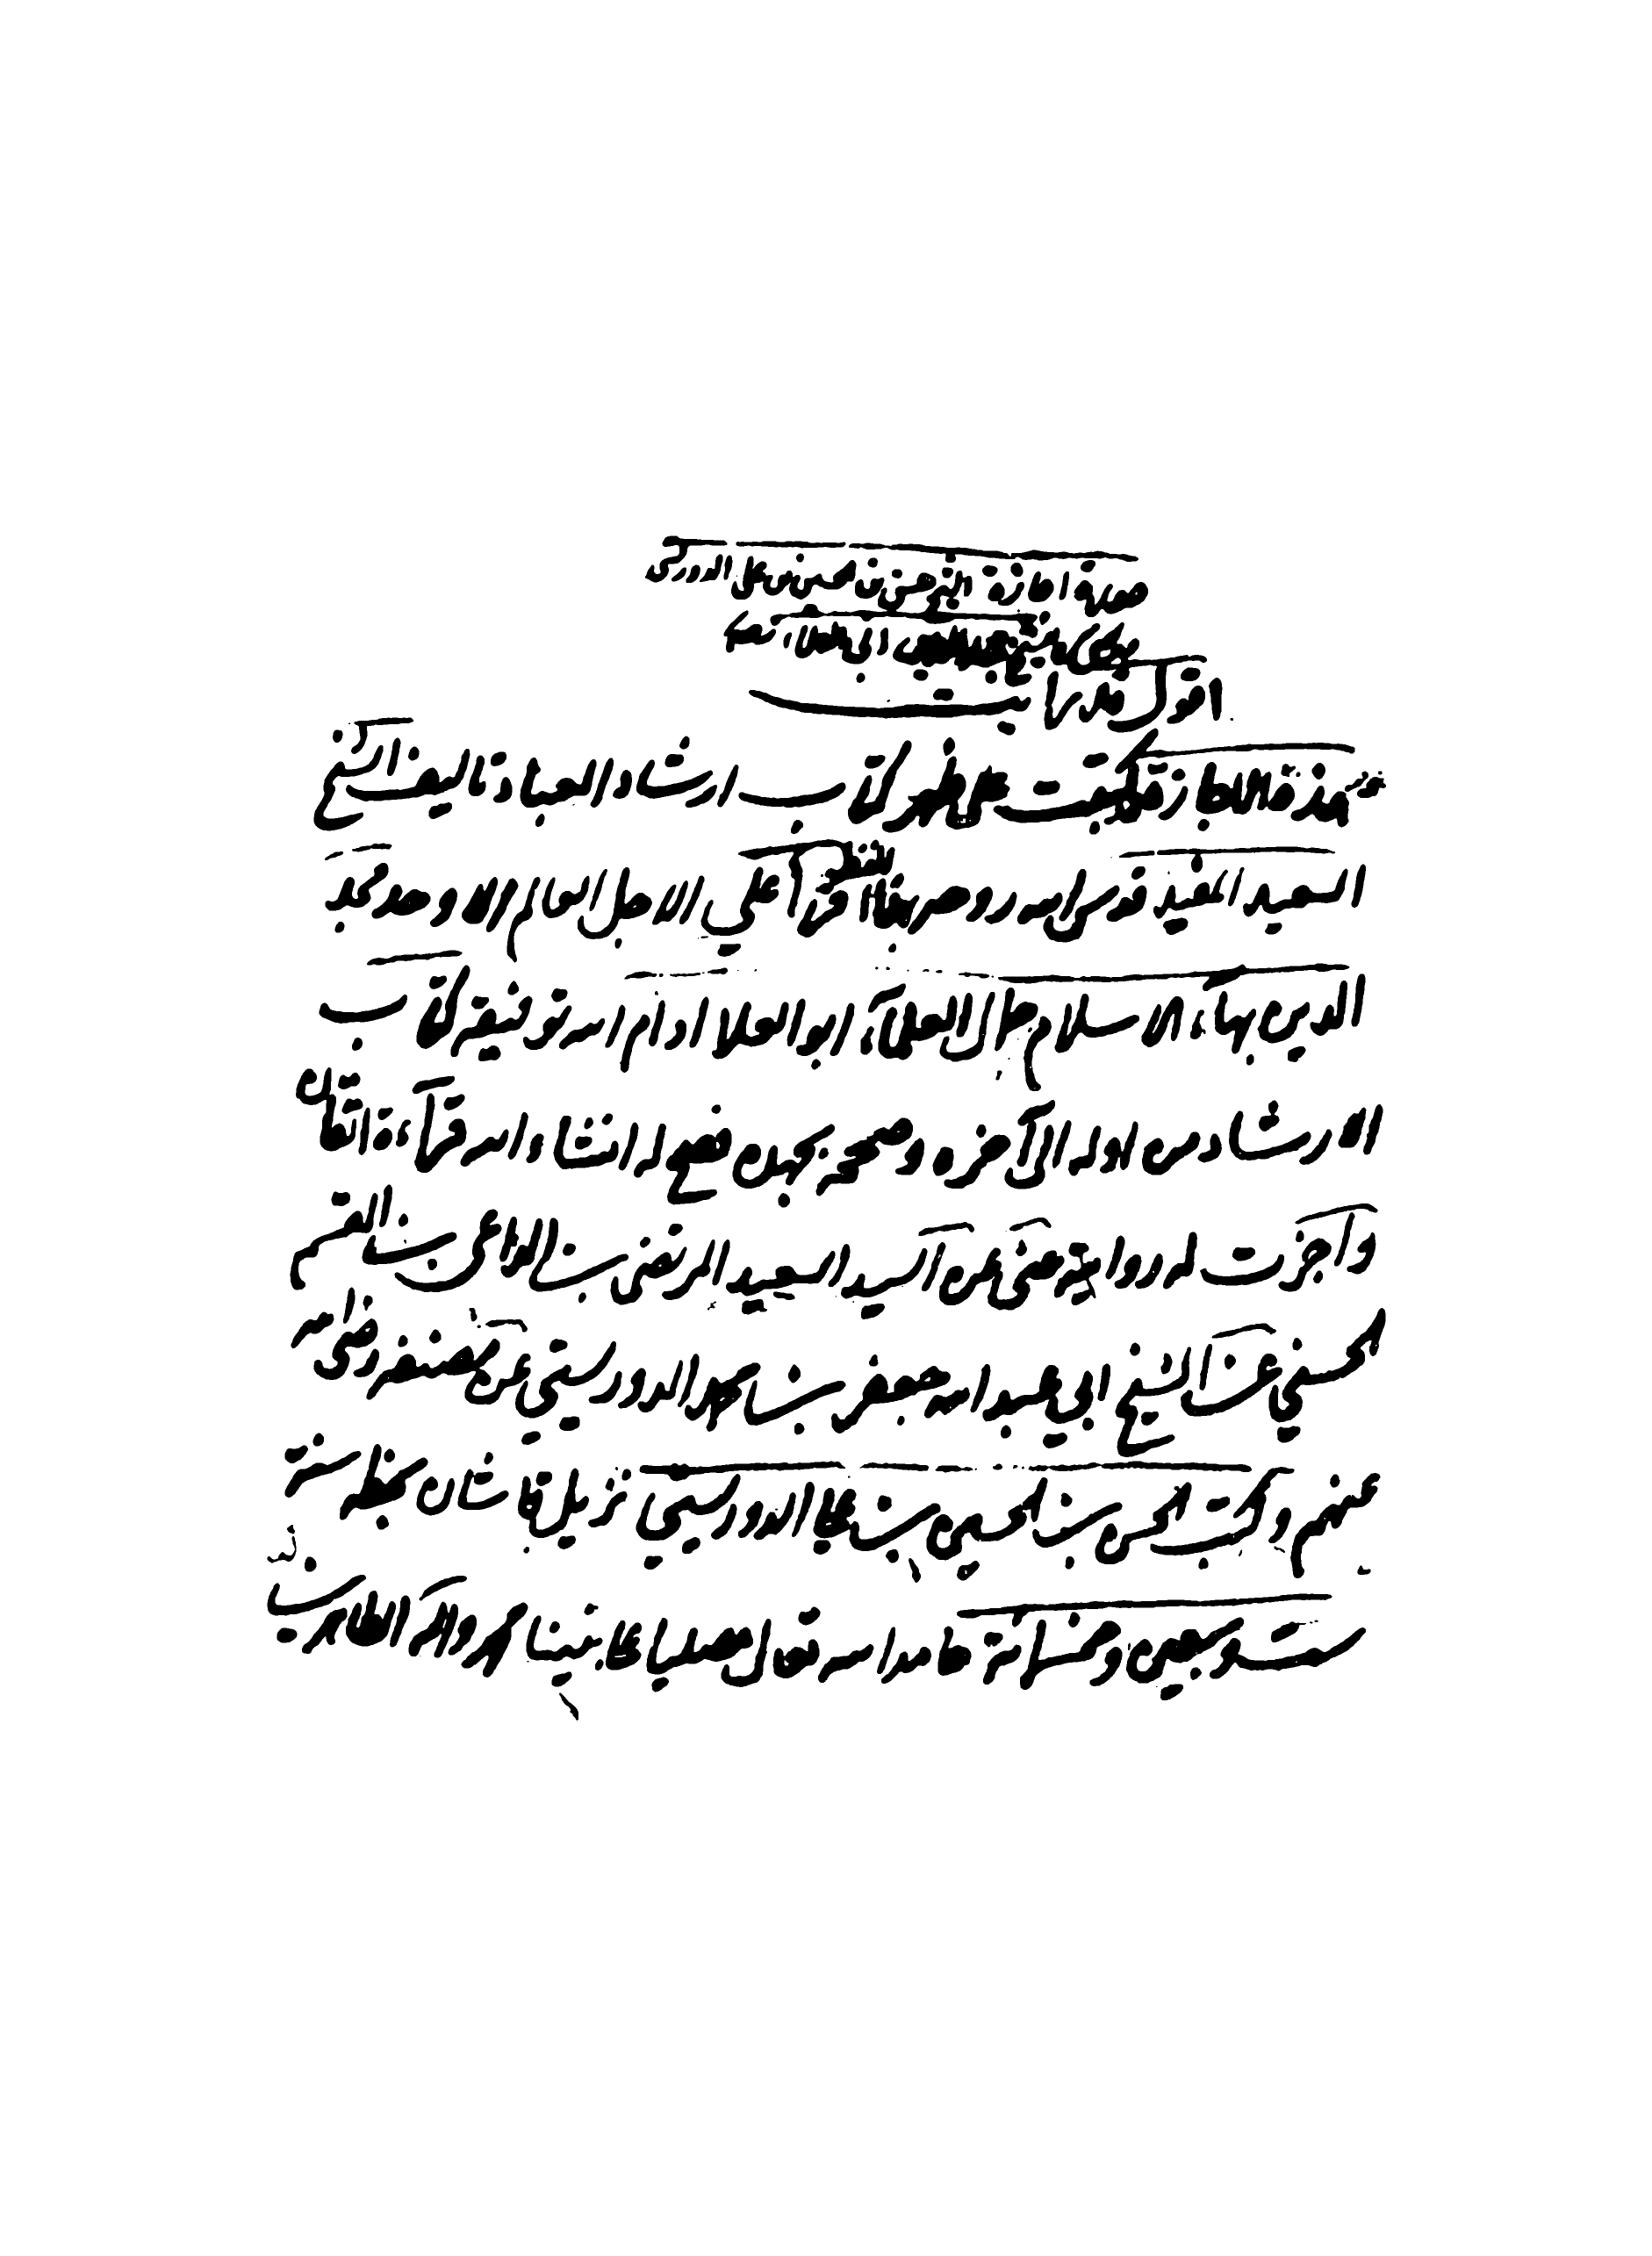 صورة اجازة الشيخ حسن بن الحسين بن علي الدوريستي
للشيخ مجد الدين ابي العلاء
اقول قد رايت
هذه الاجازة كتبت على ظهر كتاب ارشاد العباد تاليف الشيخ
السعيد المفيد قدس الله روحه بهذا اللفظ قرأ علي الاجل العالم الاوحد مجد
الدين بهاء الاسلام جمال العلماء ابو العلا ادام الله توفيقه كتاب
الارشاد من اوله الى آخره وصححه بجهده فصح له انشاء الله قراءة اتقان
وأجزت له روايته عني عن السيد السعيد المرتضى بن الداعي بن القسم
الحسني عن الشيخ ابي عبد الله جعفر بن محمد الدوريستي عن مصنفه رضي الله
عنهم وكتب الحسن بن الحسين بن علي الدوريستي نزيل قاشان بخطه سنة
ست وسبعين وخمسمائة حامدا لله تعالى مصليا على نبينا محمد وآله الطاهرين